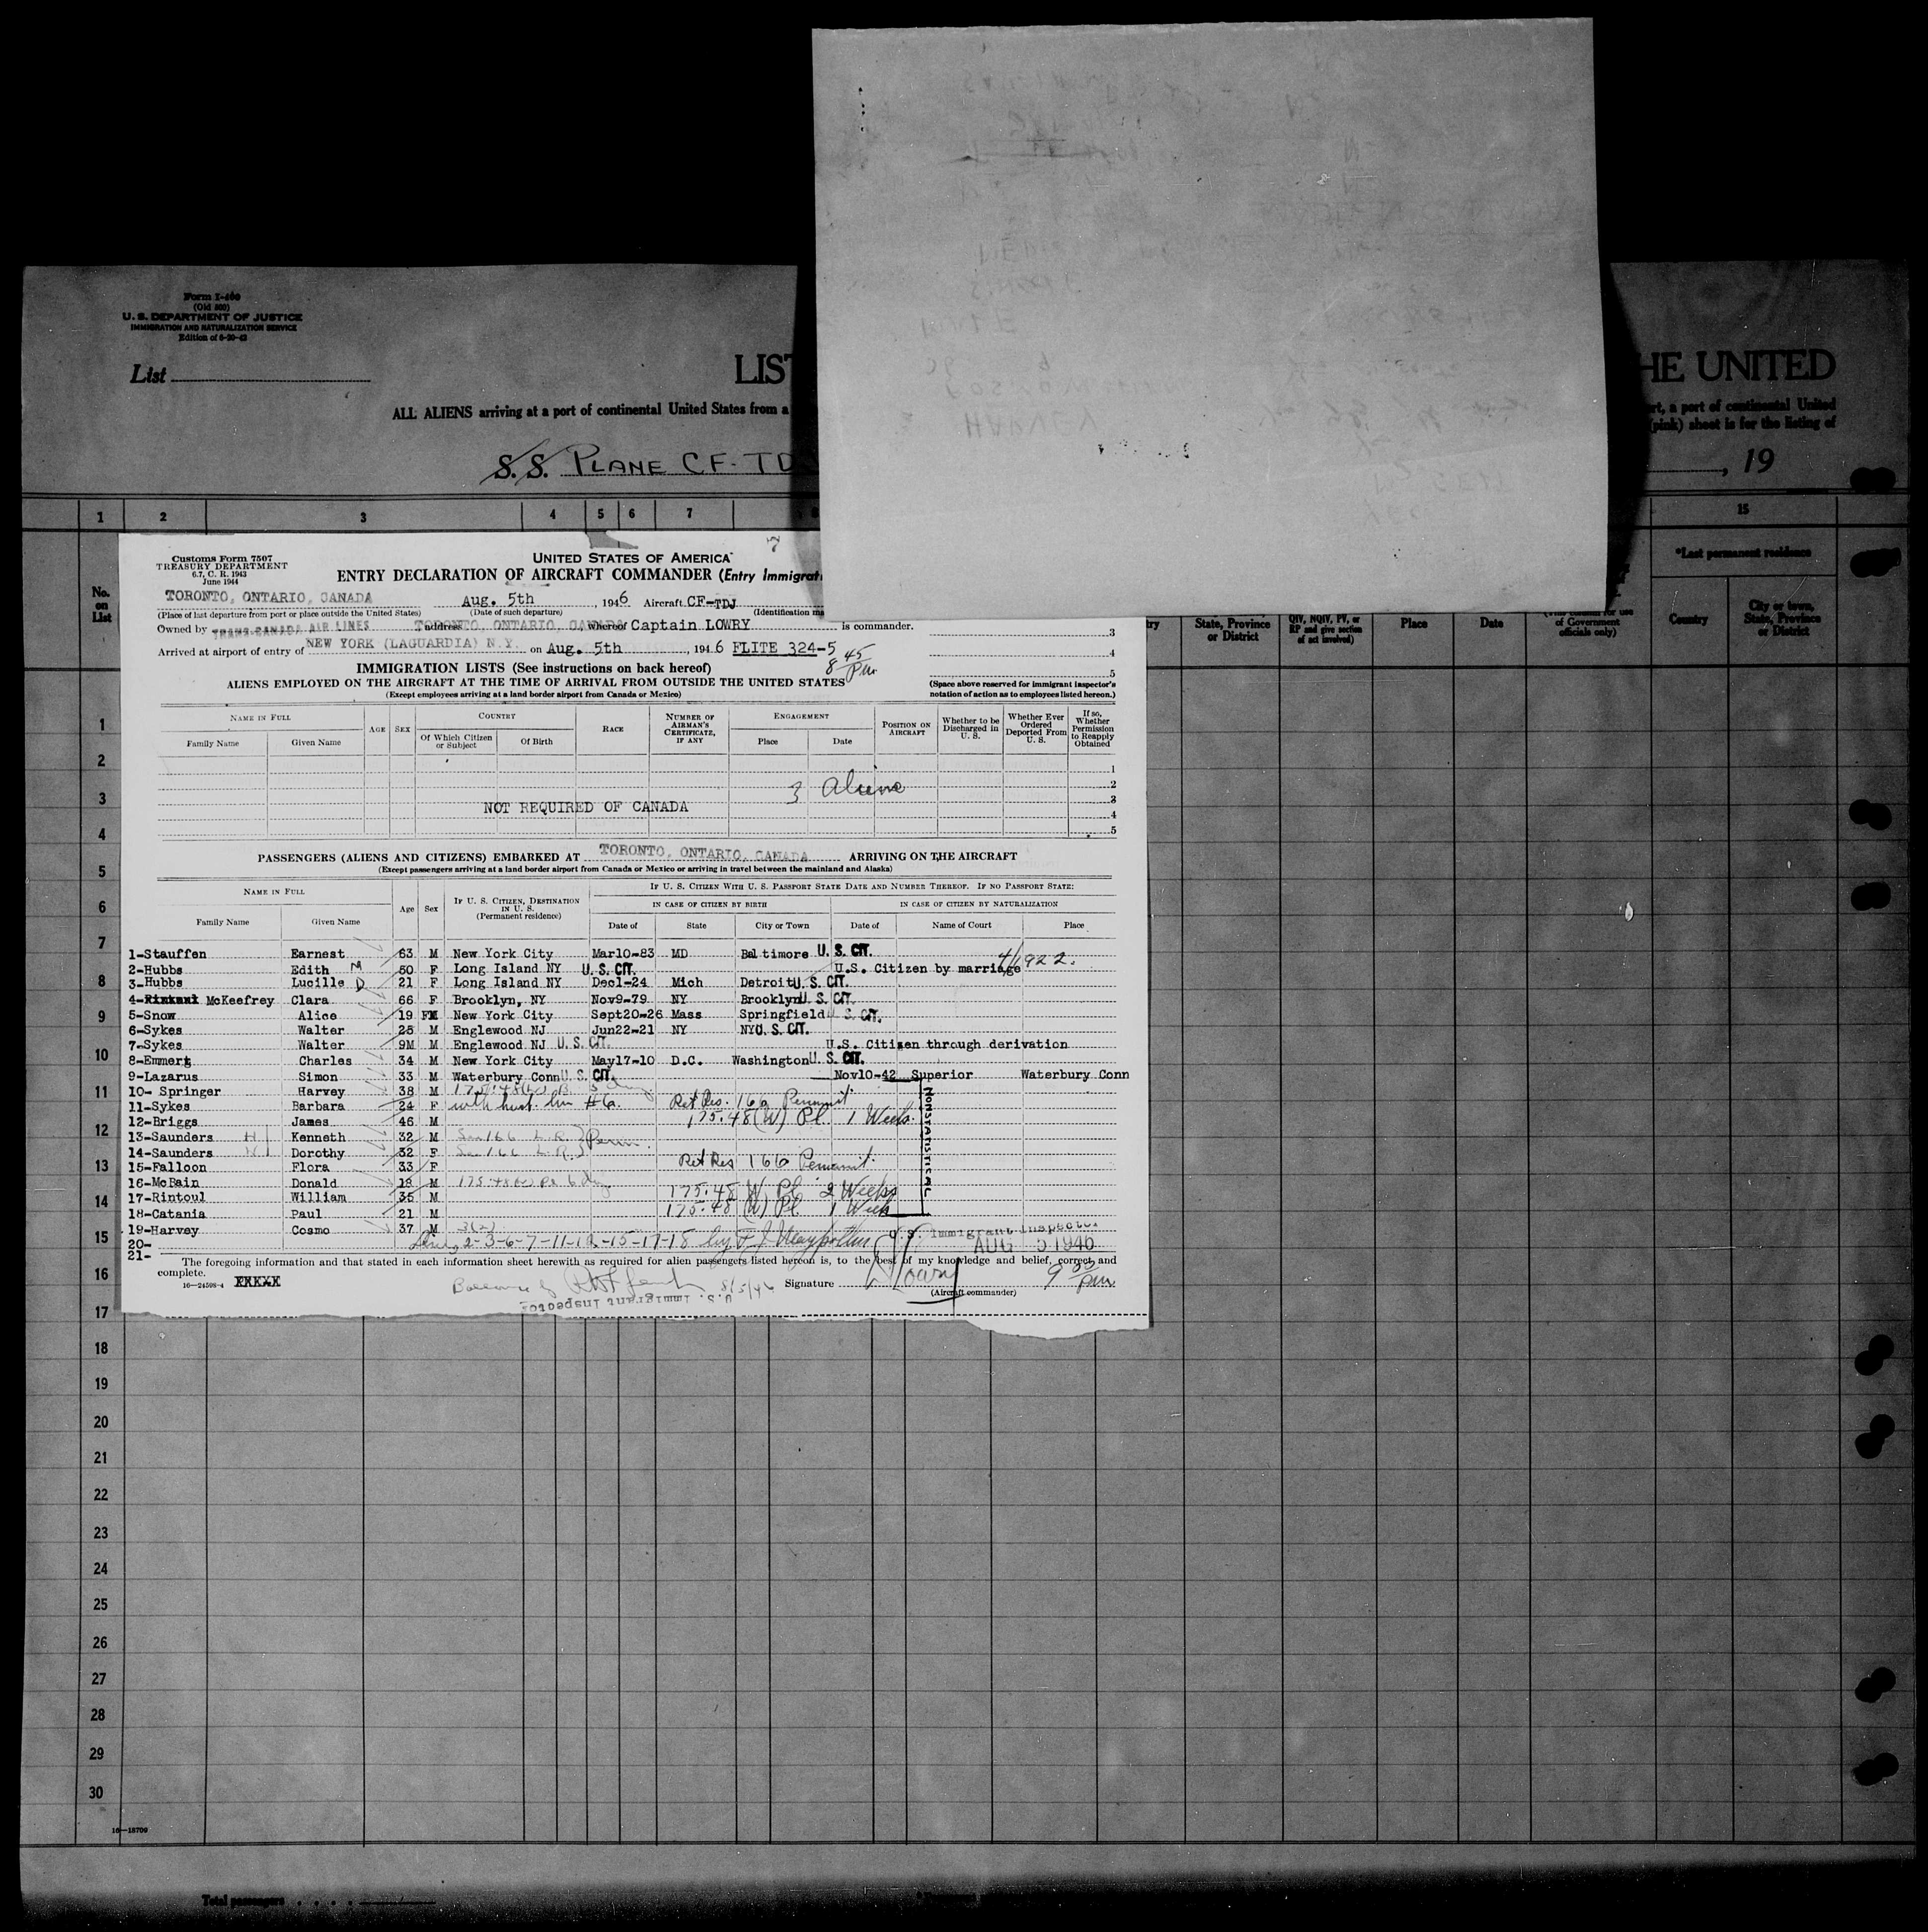 Form I-400
(Old 500)
U. S. DEPARTMENT OF JUSTICE
IMMIGRATION AND NATURALIZATION SERVICE
List
LIST HE UNITED
ALL ALIENS arriving at a port of continental United States from a rt, a port of continental United
(pink) sheet is for the listing of
S. S. PLANE CF-TD , 19
1 2 3 4 5 6 7 8 15
No. on List
State, Province or District
QIV, NQIV, PV, or RP and give section of act involved)
Place
Date
of Government officials only)
*Last permanent residence
Country
City or town, State, Province or District
Customs Form 7507
TREASURY DEPARTMENT
6.7, C. R. 1943
June 1944
UNITED STATES OF AMERICA
ENTRY DECLARATION OF AIRCRAFT COMMANDER (Entry Immigrat
TORONTO, ONTARIO, CANADA Aug. 5th , 1946 Aircraft CF-TDJ
(Place of last departure from port or place outside the United States) (Date of such departure) (Identification ma
Owned by TRANS-CANADA AIR LINES address TORONTO, ONTARIO, CANADA whereof Captain LOWRY is commander.
Arrived at airport of entry of NEW YORK (LAGUARDIA) N.Y. on Aug. 5th , 1946 FLITE 324-5
8 45 Pm
3
4
5
IMMIGRATION LISTS (See instructions on back hereof)
ALIENS EMPLOYED ON THE AIRCRAFT AT THE TIME OF ARRIVAL FROM OUTSIDE THE UNITED STATES
(Except employees arriving at a land border airport from Canada or Mexico)
(Space above reserved for immigrant inspector's notation of action as to employees listed hereon.)
NAME IN FULL AGE SEX COUNTRY RACE NUMBER OF AIRMAN'S CERTIFICATE, IF ANY ENGAGEMENT POSITION ON AIRCRAFT Whether to be Discharged in U. S. Whether Ever Ordered Deported From U. S. If so, Whether Permission to Reapply Obtained
Family Name Given Name Of Which Citizen or Subject Of Birth Place Date
1
2
3
4
5
3 Aliens
NOT REQUIRED OF CANADA
PASSENGERS (ALIENS AND CITIZENS) EMBARKED AT TORONTO, ONTARIO, CANADA ARRIVING ON THE AIRCRAFT
(Except passengers arriving at a land border airport from Canada or Mexico or arriving in travel between the mainland and Alaska)
NAME IN FULL Age Sex IF U. S. CITIZEN, DESTINATION IN U. S. (Permanent residence) IF U. S. CITIZEN WITH U. S. PASSPORT STATE DATE AND NUMBER THEREOF. IF NO PASSPORT STATE:
IN CASE OF CITIZEN BY BIRTH IN CASE OF CITIZEN BY NATURALIZATION
Family Name Given Name Date of State City or Town Date of Name of Court Place
1-Stauffen Earnest 63 M New York City Mar10-83 MD Baltimore U. S. CIT.
2-Hubbs Edith M 50 F Long Island NY U. S. CIT. U.S. Citizen by marriage 4/1922.
3-Hubbs Lucille D 21 F Long Island NY Dec1-24 Mich Detroit U. S. CIT.
4- McKeefrey Clara 66 F Brooklyn, NY Nov9-79 NY Brooklyn U. S. CIT.
5-Snow Alice 19 F Brooklyn NY New York City Sept20-26 Mass Springfield U. S. CIT.
6-Sykes Walter 25 M Englewood NJ Jun22-21 NY NY U. S. CIT.
7-Sykes Walter 9M M Englewood NJ U. S. CIT. U.S. Citizen through derivation
8-Emmert Charles 34 M New York City May17-10 D.C. Washington U. S. CIT.
9-Lazarus Simon 33 M Waterbury Conn U. S. CIT. Nov10-42 Superior Waterbury Conn
10- Springer Harvey 38 M
11-Sykes Barbara 24 F with husb. line #6. Ret Res. 166 Permit
12-Briggs James 46 M 175.48 (W) Pl. 1 Week
13-Saunders H Kenneth 32 M Sec 166 L.R. Perm.
14-Saunders W Dorothy 32 F Sec 166 L.R.
15-Falloon Flora 33 F Ret Res 166 Permit
16-McBain Donald 19 M
17-Rintoul William 35 M 175.48 W Pl 2 Weeks
18-Catania Paul 21 M 175.48 (W) Pl 1 Week
19-Harvey Cosmo 37 M 3(2)
20-
21-
NONSTATISTICAL
Lines 2-3-6-7-11-12-15-17-18 by F J
U. S. Immigrant Inspector
AUG 5 1946
The foregoing information and that stated in each information sheet herewith as required for alien passengers listed hereon is, to the best of my knowledge and belief, correct and
complete.
16—24508-4
Balance by 8/5/46
U.S. Immigrant Inspector
Signature Lowry
(Aircraft commander)
9 30 pm
1
2
3
4
5
6
7
8
9
10
11
12
13
14
15
16
17
18
19
20
21
22
23
24
25
26
27
28
29
30
16—18709
Total passengers